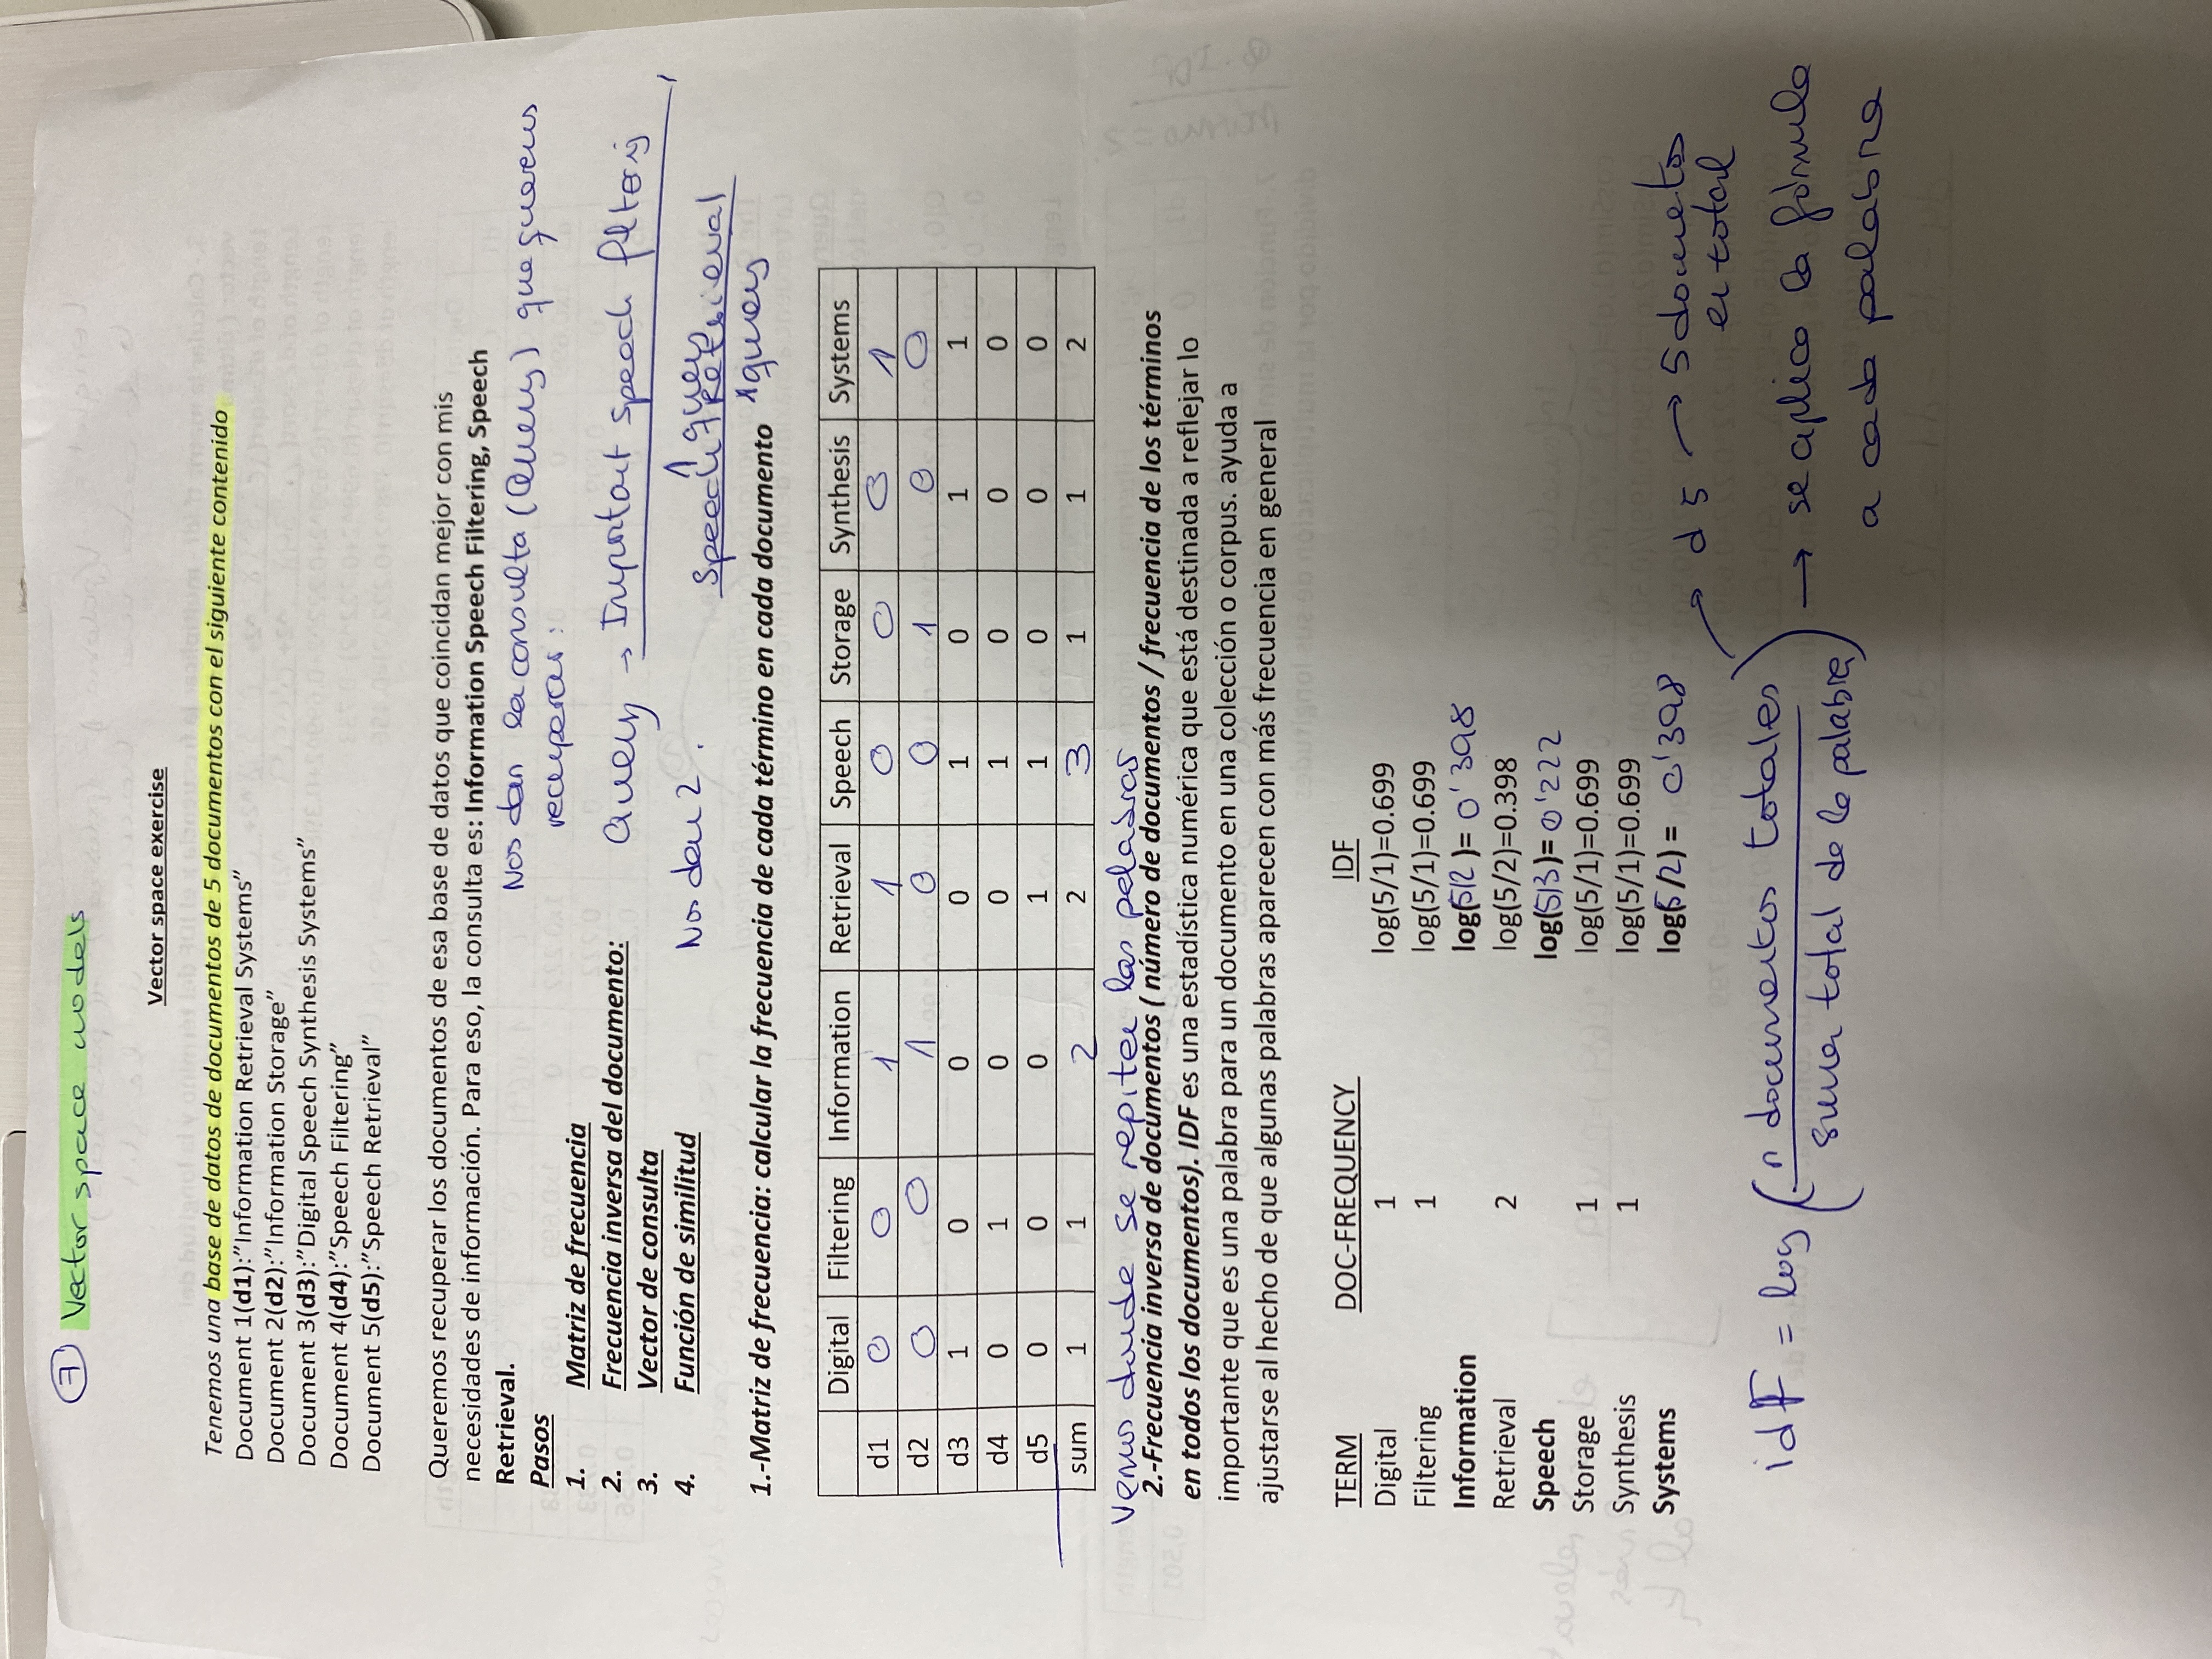 7 Vector space models
Vector space exercise
Tenemos una base de datos de documentos de 5 documentos con el siguiente contenido
Document 1(d1):”Information Retrieval Systems”
Document 2(d2):”Information Storage”
Document 3(d3):”Digital Speech Synthesis Systems”
Document 4(d4):”Speech Filtering”
Document 5(d5):”Speech Retrieval”
Queremos recuperar los documentos de esa base de datos que coincidan mejor con mis
necesidades de información. Para eso, la consulta es: Information Speech Filtering, Speech
Retrieval.
Nos dan la consulta (Query) que queremos
recuperar:
Pasos
1. Matriz de frecuencia
2. Frecuencia inversa del documento:
3. Vector de consulta
4. Función de similitud
Query → Important speech filtering,
1 query
Nos dan 2.
Speech Retrieval
1 query
1.-Matriz de frecuencia: calcular la frecuencia de cada término en cada documento
Digital Filtering Information Retrieval Speech Storage Synthesis Systems
d1 0 0 1 1 0 0 0 1
d2 0 0 1 0 0 1 0 0
d3 1 0 0 0 1 0 1 1
d4 0 1 0 0 1 0 0 0
d5 0 0 0 1 1 0 0 0
sum 1 1 2 2 3 1 1 2
Vemos donde se repiten las palabras
2.-Frecuencia inversa de documentos ( número de documentos / frecuencia de los términos
en todos los documentos). IDF es una estadística numérica que está destinada a reflejar lo
importante que es una palabra para un documento en una colección o corpus. ayuda a
ajustarse al hecho de que algunas palabras aparecen con más frecuencia en general
TERM DOC-FREQUENCY IDF
Digital 1 log(5/1)=0.699
Filtering 1 log(5/1)=0.699
Information log(5/2 )= 0'398
Retrieval 2 log(5/2)=0.398
Speech log(5/3)= 0'222
Storage 1 log(5/1)=0.699
Synthesis 1 log(5/1)=0.699
Systems log(5/2) = 0'398
→ d5 → 5 documentos
en total
idF = log (n documentos totales / suma total de la palabra) → se aplica la fórmula
a cada palabra